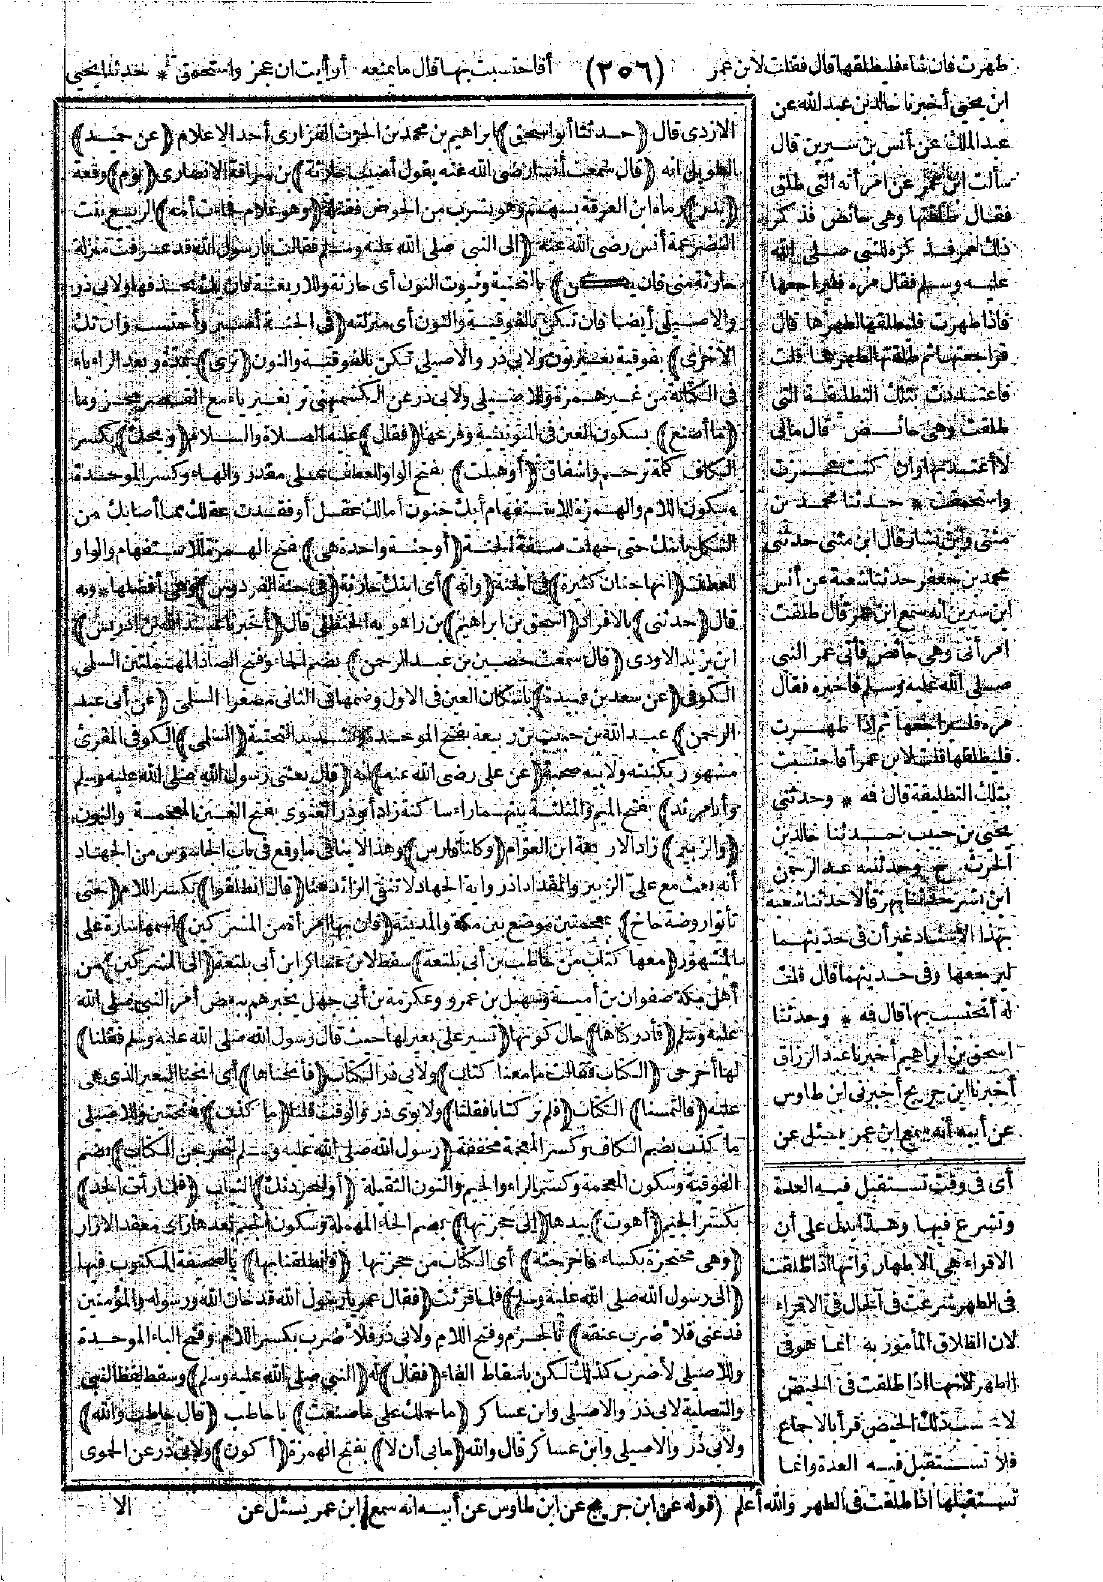 طهرت فان شاء فليطلقها قال فقلت لابن عمر (٢٥٦) أفاحتسبت بها قال ما يمنعه أرأيت ان عجز واستحمق * حدثنا يحيى
ابن يحيى أخبرنا خالد بن عبد الله عن
عبد الملك عن أنس بن سيرين قال
سألت ابن عمر عن امرأته التي طلق
فقال طلقتها وهى حائض فذكر
ذلك لعمر فذكره للنبى صلى الله
عليه وسلم فقال مره فليراجعها
فاذا طهرت فليطلقها لطهرها قال
فراجعتها ثم طلقتها لطهرها قلت
فاعتددت بتلك التطليقة التى
طلقت وهى حائض قال مالى
لا أعتد بها وان كنت عجزت
واستحمقت * حدثنا محمد بن
مثنى وابن بشار قال ابن مثنى حدثنى
محمد بن جعفر حدثنا شعبة عن أنس
ابن سيرين أنه سمع ابن عمر قال طلقت
امرأتى وهى حائض فأتى عمر النبى
صلى الله عليه وسلم فأخبره فقال
مره فليراجعها ثم اذا طهرت
فليطلقها قلت لابن عمر أفاحتسبت
بتلك التطليقة قال فه * وحدثنى
يحيى بن حبيب حدثنا خالد بن
الحرث ح وحدثنيه عبد الرحمن
ابن بشر حدثنا بهز قالا حدثنا شعبة
بهذا الاسناد غير أن فى حديثهما
ليرجعها وفى حديثهما قال قلت
له أتحتسب بها قال فه * وحدثنا
اسحق بن ابراهيم أخبرنا عبد الرزاق
أخبرنا ابن جريج أخبرنى ابن طاوس
عن أبيه أنه سمع ابن عمر يسئل عن
أى فى وقت تستقبل فيه العدة
وتشرع فيها وهذا يدل على أن
الاقراء هى الاطهار وأنها اذا طلقت
فى الطهر شرعت فى الحال فى الاقراء
لان الطلاق المأمور به انما هو فى
الطهر لانها اذا طلقت فى الحيض
لا يحسب ذلك الحيض قرأ بالاجماع
فلا تستقبل فيه العدة وانما
تستقبلها اذا طلقت فى الطهر والله أعلم (قوله عن ابن جريج عن ابن طاوس عن أبيه انه سمع ابن عمر يسئل عن
الازدى قال (حدثنا أبو اسحق) ابراهيم بن محمد بن الحرث الفزارى أحد الاعلام (عن حميد)
الطويل انه (قال سمعت أنسا رضى الله عنه يقول أصيب حارثة) بن سراقة الانصارى (يوم) وقعة
(بدر) رماه ابن العرقة بسهم وهو يشرب من الحوض فقتله (وهو غلام فجاءت أمه) الربيع بنت
النضر عمة أنس رضى الله عنه (الى النبى صلى الله عليه وسلم فقالت يا رسول الله قد عرفت منزلة
حارثة منى فان يكن) بالتحتية وثبوت النون أى حارثة وللاربعة فان يك بحذفها ولابى ذر
والاصيلى أيضا فان تكن بالفوقية والنون أى منزلته (فى الجنة أصبر وأحتسب وان تك
الاخرى) بفوقية بغير نون ولابى ذر والاصيلى تكن بالفوقية والنون (ترى) بمدة وبعد الراء ياء
فى الكتابة من غير همزة وللاصيلى ولابى ذر عن الكشميهنى تر بغير ياء مع القصر مجزوما
(ما أصنع) بسكون العين فى اليونينية وفرعها (فقال) عليه الصلاة والسلام (ويحك) بكسر
الكاف كلمة ترحم واشفاق (أوهبلت) بفتح الواو للعطف على مقدر والهاء وكسر الموحدة
وسكون اللام والهمزة للاستفهام أبك جنون أمالك عقل أو فقدت عقلك مما أصابك من
الثكل بابنك حتى جهلت صفة الجنة (أوجنة واحدة هى) بفتح الهمزة للاستفهام والواو
للعطف (انها جنان كثيرة) فى الجنة (وانه) أى ابنك حارثة (فى جنة الفردوس) وهى أفضلها * وبه
قال (حدثنى) بالافراد (اسحق بن ابراهيم) بن راهويه الحنظلى قال (أخبرنا عبد الله بن ادريس)
ابن يزيد الاودى (قال سمعت حصين بن عبد الرحمن) بضم الحاء وفتح الصاد المهملتين السلمى
الكوفى (عن سعد بن عبيدة) باسكان العين فى الاول وضمها فى الثانى مصغرا السلمى (عن أبى عبد
الرحمن) عبد الله بن حبيب بن ربيعة بفتح الموحدة وتشديد التحتية (السلمى) الكوفى المقرئ
مشهور بكنيته ولابيه صحبة (عن على رضى الله عنه) انه (قال بعثنى رسول الله صلى الله عليه وسلم
وأبا مرثد) بفتح الميم والمثلثة بينهما راء ساكنة زاد أبو ذر الغنوى بفتح الغين المعجمة والنون
(والزبير) زاد الاربعة ابن العوام (وكلنا فارس) وهذا لا ينافى ما وقع فى باب الجاسوس من الجهاد
أنه بعث مع على الزبير والمقداد اذ رواية الجهاد لا تنفى الزائد هنا (قال انطلقوا) بكسر اللام (حتى
تأتوا روضة خاخ) بمعجمتين موضع بين مكة والمدينة (فان بها امرأة من المشركين) اسمها سارة على
المشهور (معها كتاب من حاطب بن أبى بلتعة) سقط لابن عساكر ابن أبى بلتعة (الى المشركين) من
أهل مكة صفوان بن أمية وسهيل بن عمرو وعكرمة بن أبى جهل يخبرهم ببعض أمر النبى صلى الله
عليه وسلم (فأدركناها) حال كونها (تسير على بعير لها حيث قال رسول الله صلى الله عليه وسلم فقلنا)
لها أخرجى (الكتاب فقالت ما معنا كتاب) ولابى ذر الكتاب (فأنخناها) أى أنخنا البعير الذى هى
عليه (فالتمسنا) الكتاب (فلم نر كتابا فقلنا) ولابوى ذر والوقت قلنا (ما كذب) بفتحتين وللاصيلى
ما كذب بضم الكاف وكسر المعجمة مخففة (رسول الله صلى الله عليه وسلم لتخرجن الكتاب) بضم
الفوقية وسكون المعجمة وكسر الراء والجيم والنون الثقيلة (أو لنجردنك) الثياب (فلما رأت الجد)
بكسر الجيم (أهوت) بيدها (الى حجزتها) بضم الحاء المهملة وسكون الجيم بعدها زاى معقد الازار
(وهى محتجزة بكساء فأخرجته) أى الكتاب من حجزتها (فانطلقنا بها) بالصحيفة المكتوب فيها
(الى رسول الله صلى الله عليه وسلم) فلما قرئت (فقال عمر يا رسول الله قد خان الله ورسوله والمؤمنين
فدعنى فلا ضرب عنقه) بالجزم وفتح اللام ولابى ذر فلا ضرب بكسر اللام وفتح الباء الموحدة
وللاصيلى لأضرب كذلك لكن باسقاط الفاء (فقال) له (النبى صلى الله عليه وسلم) وسقط لفظ النبى
والتصلية لابى ذر والاصيلى وابن عساكر (ما حملك على ما صنعت) يا حاطب (قال حاطب والله)
ولابى ذر والاصيلى وابن عساكر قال والله (ما بى أن لا) بفتح الهمزة (أكون) ولابى ذر عن الحموى
الا